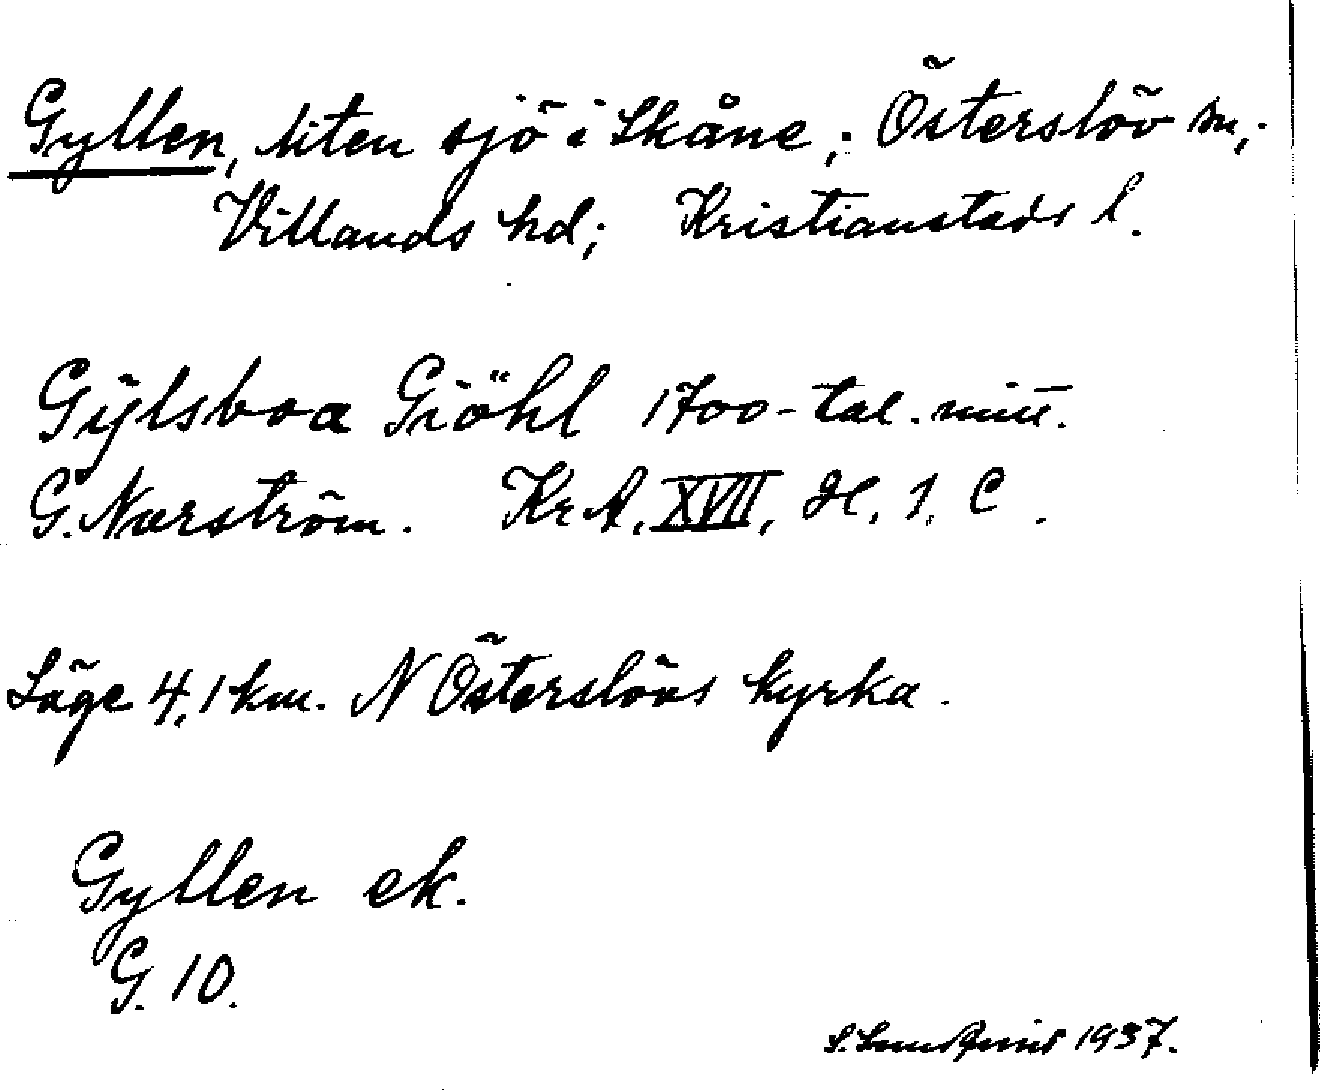 Gyllen, liten sjö i Skåne; Österslöv sn;
Villands hd; Kristianstads l.
Gÿlsboa Giöhl 1700-tal. mitt.
G. Narström. KrA, XVII, H, 1, C.
Läge 4,1 km. N Österslövs kyrka.
Gyllen ek.
G. 10.
S. Lundquist 1937.